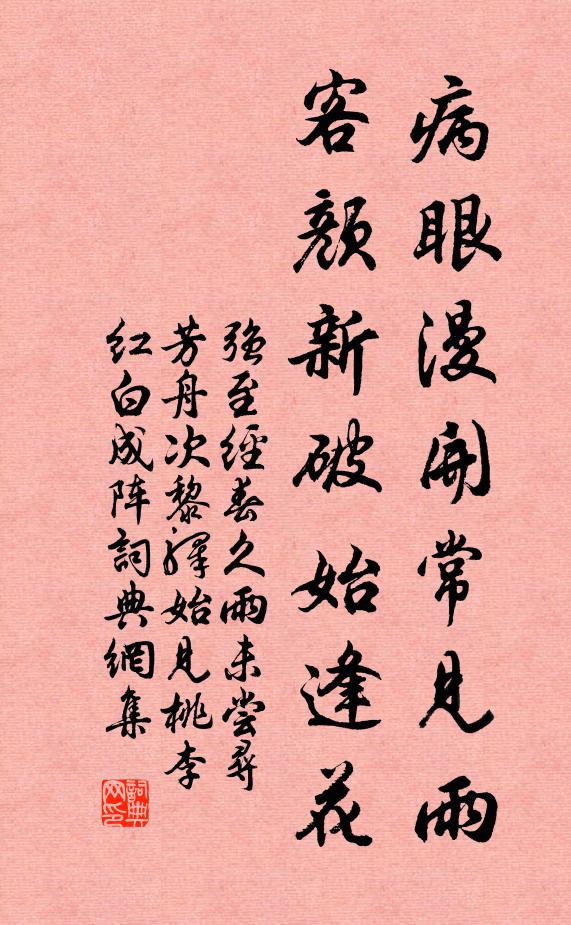 病眼漫開常見雨
客顏新破始逢花
強至經春久雨未尝尋
芳舟次黎驛始見桃李
红白成阵詞典網集
詞典网印